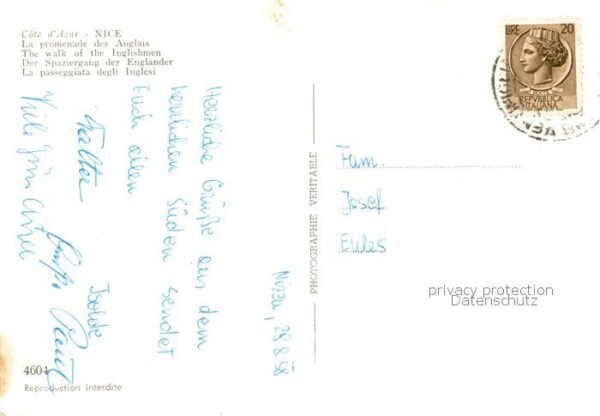 Côte d'Azur - NICE
La promenade des Anglais
The walk of the Inglishmen
Der Spaziergang der Engländer
La passeggiata degli Inglesi
Nizza, 29.8.58
Herzliche Grüße aus dem
herrlichen Süden sendet
Euch allen
Isolde
Walter
Viele
4604
Reproduction interdite
PHOTOGRAPHIE VERITABLE
LIRE 20
POSTE
REPVBBLICA
ITALIANA
Fam.
Josef
Eules
privacy protection
Datenschutz